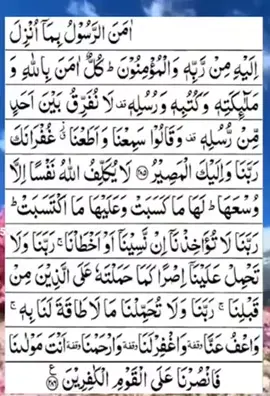 اٰمَنَ الرَّسُوْلُ بِمَاۤ اُنْزِلَ
اِلَيْهِ مِنْ رَّبِّهٖ وَالْمُؤْمِنُوْنَ ؕ كُلٌّ اٰمَنَ بِاللّٰهِ وَ
مَلٰٓئِكَتِهٖ وَكُتُبِهٖ وَرُسُلِهٖ قف لَا نُفَرِّقُ بَيْنَ اَحَدٍ
مِّنْ رُّسُلِهٖ قف وَقَالُوْا سَمِعْنَا وَاَطَعْنَا ؗ غُفْرَانَكَ
رَبَّنَا وَاِلَيْكَ الْمَصِيْرُ ﴿۲۸۵﴾ لَا يُكَلِّفُ اللّٰهُ نَفْسًا اِلَّا
وُسْعَهَا ؕ لَهَا مَا كَسَبَتْ وَعَلَيْهَا مَا اكْتَسَبَتْ ؕ
رَبَّنَا لَا تُؤَاخِذْنَاۤ اِنْ نَّسِيْنَاۤ اَوْ اَخْطَاْنَا ۚ رَبَّنَا وَلَا
تَحْمِلْ عَلَيْنَاۤ اِصْرًا كَمَا حَمَلْتَهٗ عَلَى الَّذِيْنَ مِنْ
قَبْلِنَا ۚ رَبَّنَا وَلَا تُحَمِّلْنَا مَا لَا طَاقَةَ لَنَا بِهٖ ۚ
وَاعْفُ عَنَّا وقفة وَاغْفِرْ لَنَا وقفة وَارْحَمْنَا وقفة اَنْتَ مَوْلٰىنَا
فَانْصُرْنَا عَلَى الْقَوْمِ الْكٰفِرِيْنَ ﴿۲۸۶﴾ ع